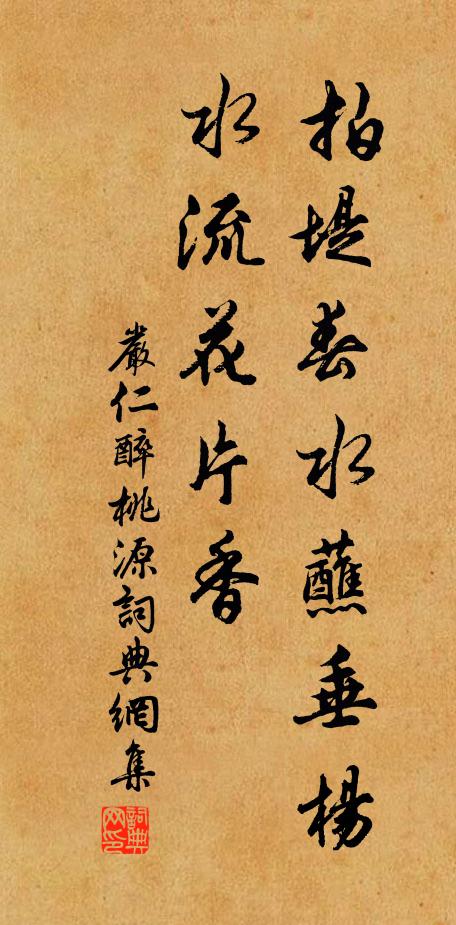 拍堤春水蘸垂楊
水流花片香
嚴仁醉桃源詞典網集
詞典网印